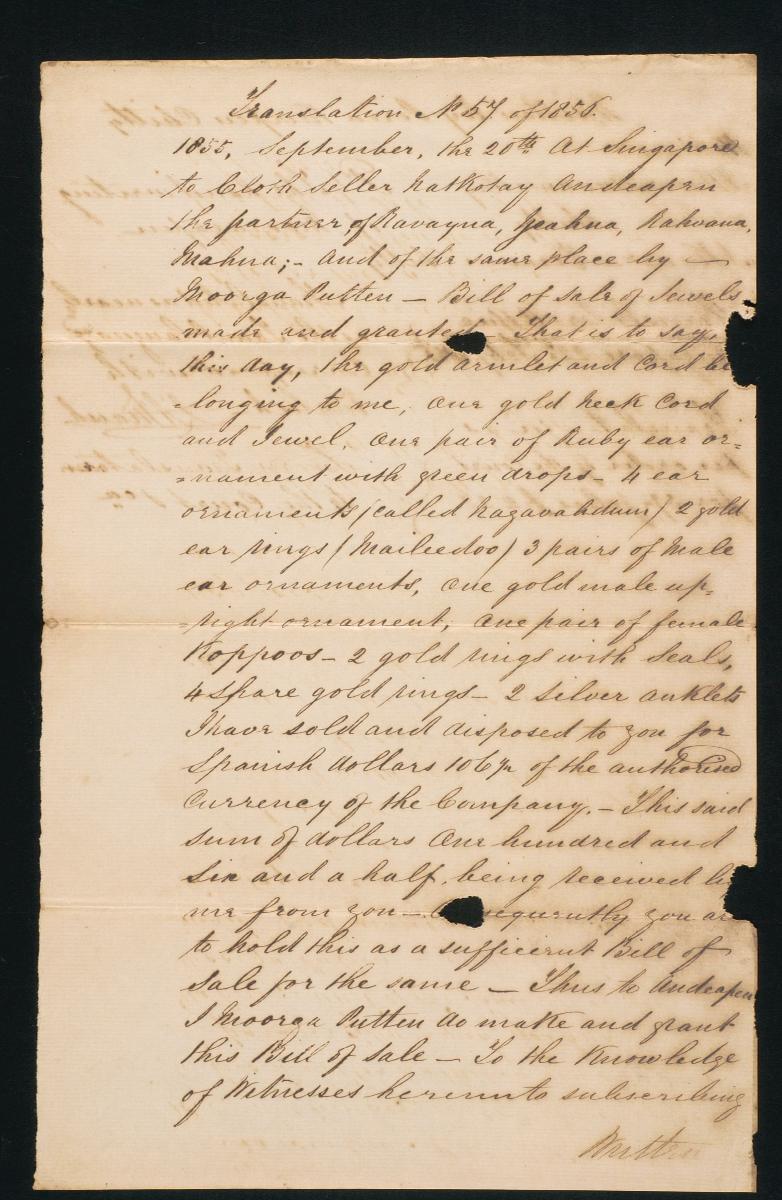 Translation No 57 of 1856.
1855, September, the 20th At Singapore
to Cloth Seller Natkotay Andeapen
the partner of Ravayna, Yeahna, Rahvana,
Mahna; - and of the same place by —
Moorga Putten — Bill of Sale of Jewels
made and granted - That is to say,
this day, the gold armlet and Cord be
-longing to me, One gold Neck Cord
and Jewel, One pair of Ruby ear or=
=nament with green drops - 4 ear
ornaments (called Nagavahdum) 2 gold
ear rings (Maileedoo) 3 pairs of Male
ear ornaments, One gold male up-
=right ornament, One pair of female
Koppoos - 2 gold rings with Seals,
4 Spare gold rings - 2 Silver anklets
I have sold and disposed to you for
Spanish dollars 106½ of the authorised
Currency of the Company. - This said
sum of dollars One hundred and
Six and a half, being received
me from you — sequently you
to hold this as a sufficient Bill of
Sale for the same — Thus to Andeapen
I Moorga Putten do make and grant
this Bill of Sale — To the Knowledge
of Witnesses hereunto subscribing